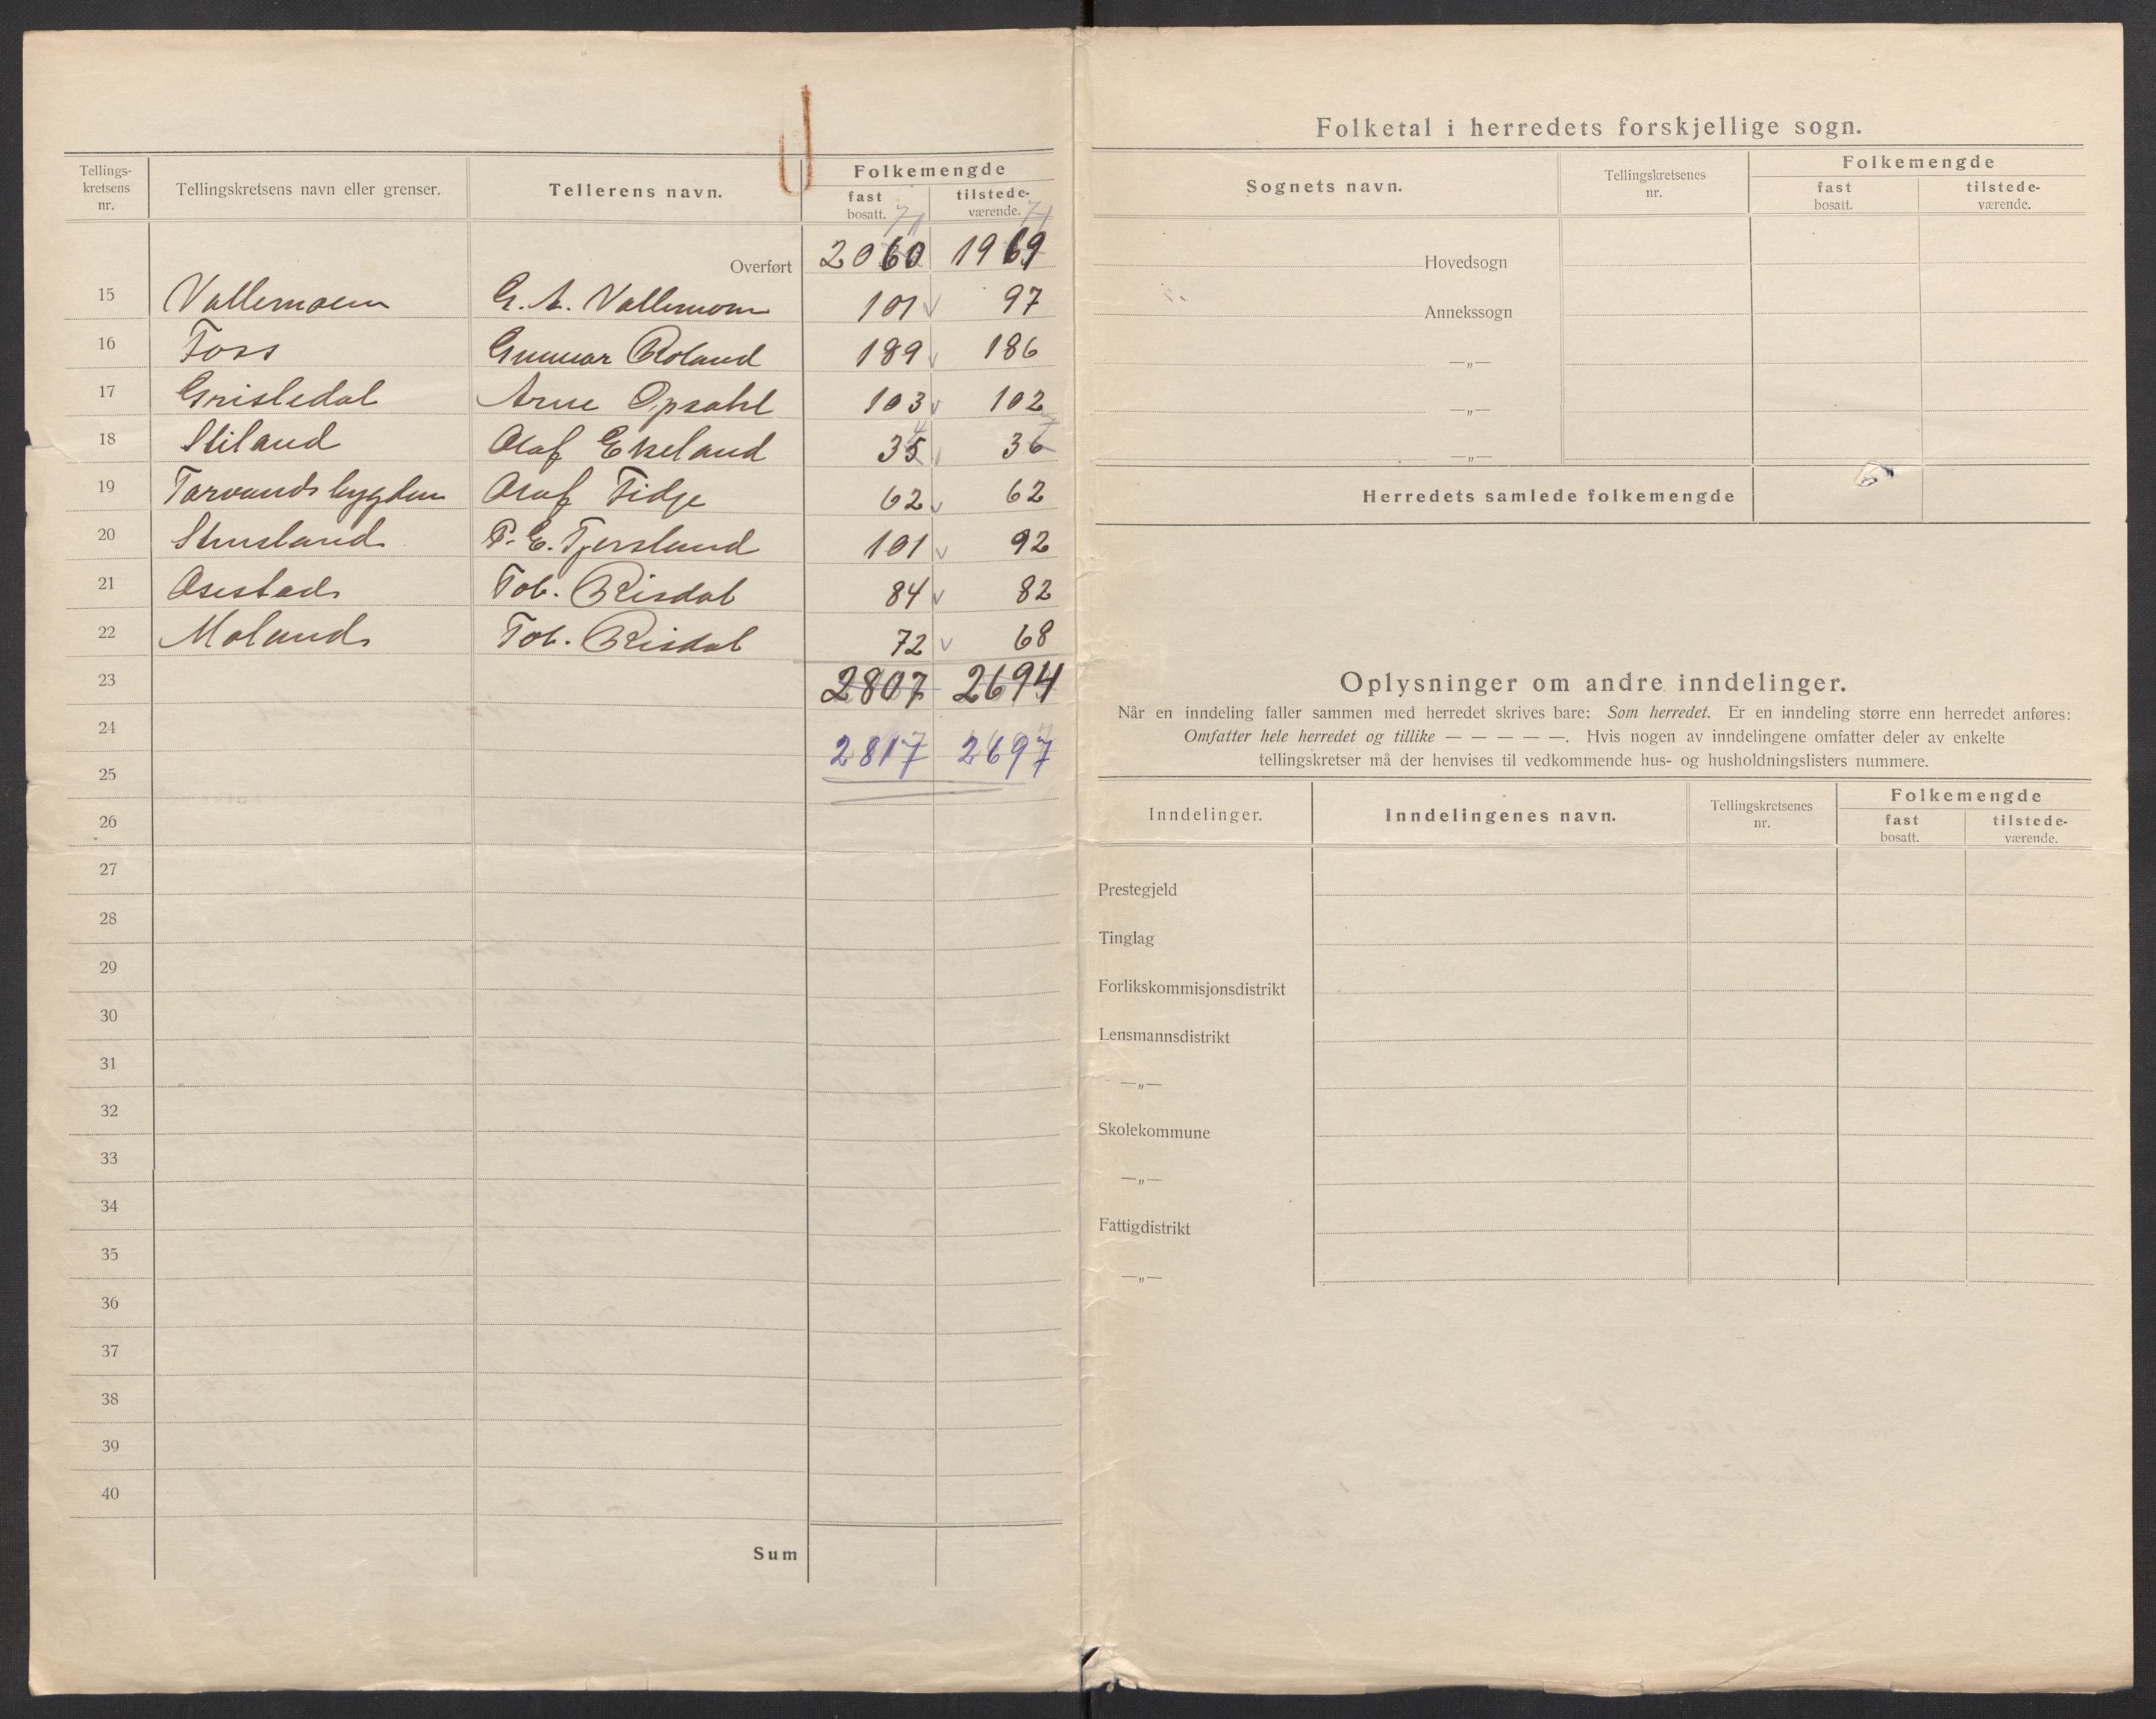 Tellings-kretsens nr. | Tellingskretsens navn eller grenser. | Tellerens navn. | Folkemengde
fast bosatt. | tilstede-værende.
71 | 71
Overført 2060 1969
15 Vallemoen G. A. Vallemoen 101 v 97
16 Foss Gunnar Roland 189 v 186
17 Grisledal Arne Opsahl 103 v 102
18 Stiland Olaf Ekeland 35 36
19 Tarvandsbygden Olaf Fidje 62 v 62
20 Stusland P. E. Tjersland 101 v 92
21 Osestad Tob. Risdal 84 v 82
22 Moland Tob. Risdal 72 v 68
23 2807 2694
24 2817 2697
25
26
27
28
29
30
31
32
33
34
35
36
37
38
39
40
Sum
Folketal i herredets forskjellige sogn.
Sognets navn. | Tellingskretsenes nr. | Folkemengde
fast bosatt. | tilstede-værende.
Hovedsogn
Annekssogn
—„—
—„—
—„—
Herredets samlede folkemengde
Oplysninger om andre inndelinger.
Når en inndeling faller sammen med herredet skrives bare: Som herredet. Er en inndeling større enn herredet anføres:
Omfatter hele herredet og tillike — — — — —. Hvis nogen av inndelingene omfatter deler av enkelte
tellingskretser må der henvises til vedkommende hus- og husholdningslisters nummere.
Inndelinger. | Inndelingenes navn. | Tellingskretsenes nr. | Folkemengde
fast bosatt. | tilstede-værende.
Prestegjeld
Tinglag
Forlikskommisjonsdistrikt
Lensmannsdistrikt
—„—
Skolekommune
—„—
Fattigdistrikt
—„—